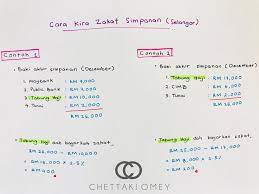 Cara Kira Zakat Simpanan (Selangor)
Contoh 1
• Baki akhir simpanan (December)
1. Maybank : RM 4,000
2. Public Bank : RM 4,000
3. Tabung Haji : RM 10,000
4. Tunai :
RM 26,000
• Tabung Haji dah bayarkan zakat,
RM 26,000 - RM 10,000
= RM 16,000 x 2.5%
= RM 400
Contoh 2
• Baki akhir simpanan (December)
1. Tabung Haji : RM 17,000
2. CIMB :
3. Tunai :
RM 25,000
• Tabung Haji dah bayarkan zakat,
RM 25,000 - RM 17,000
= RM 8,000 x 2.5%
= RM 200
CHETTAKLOMEY